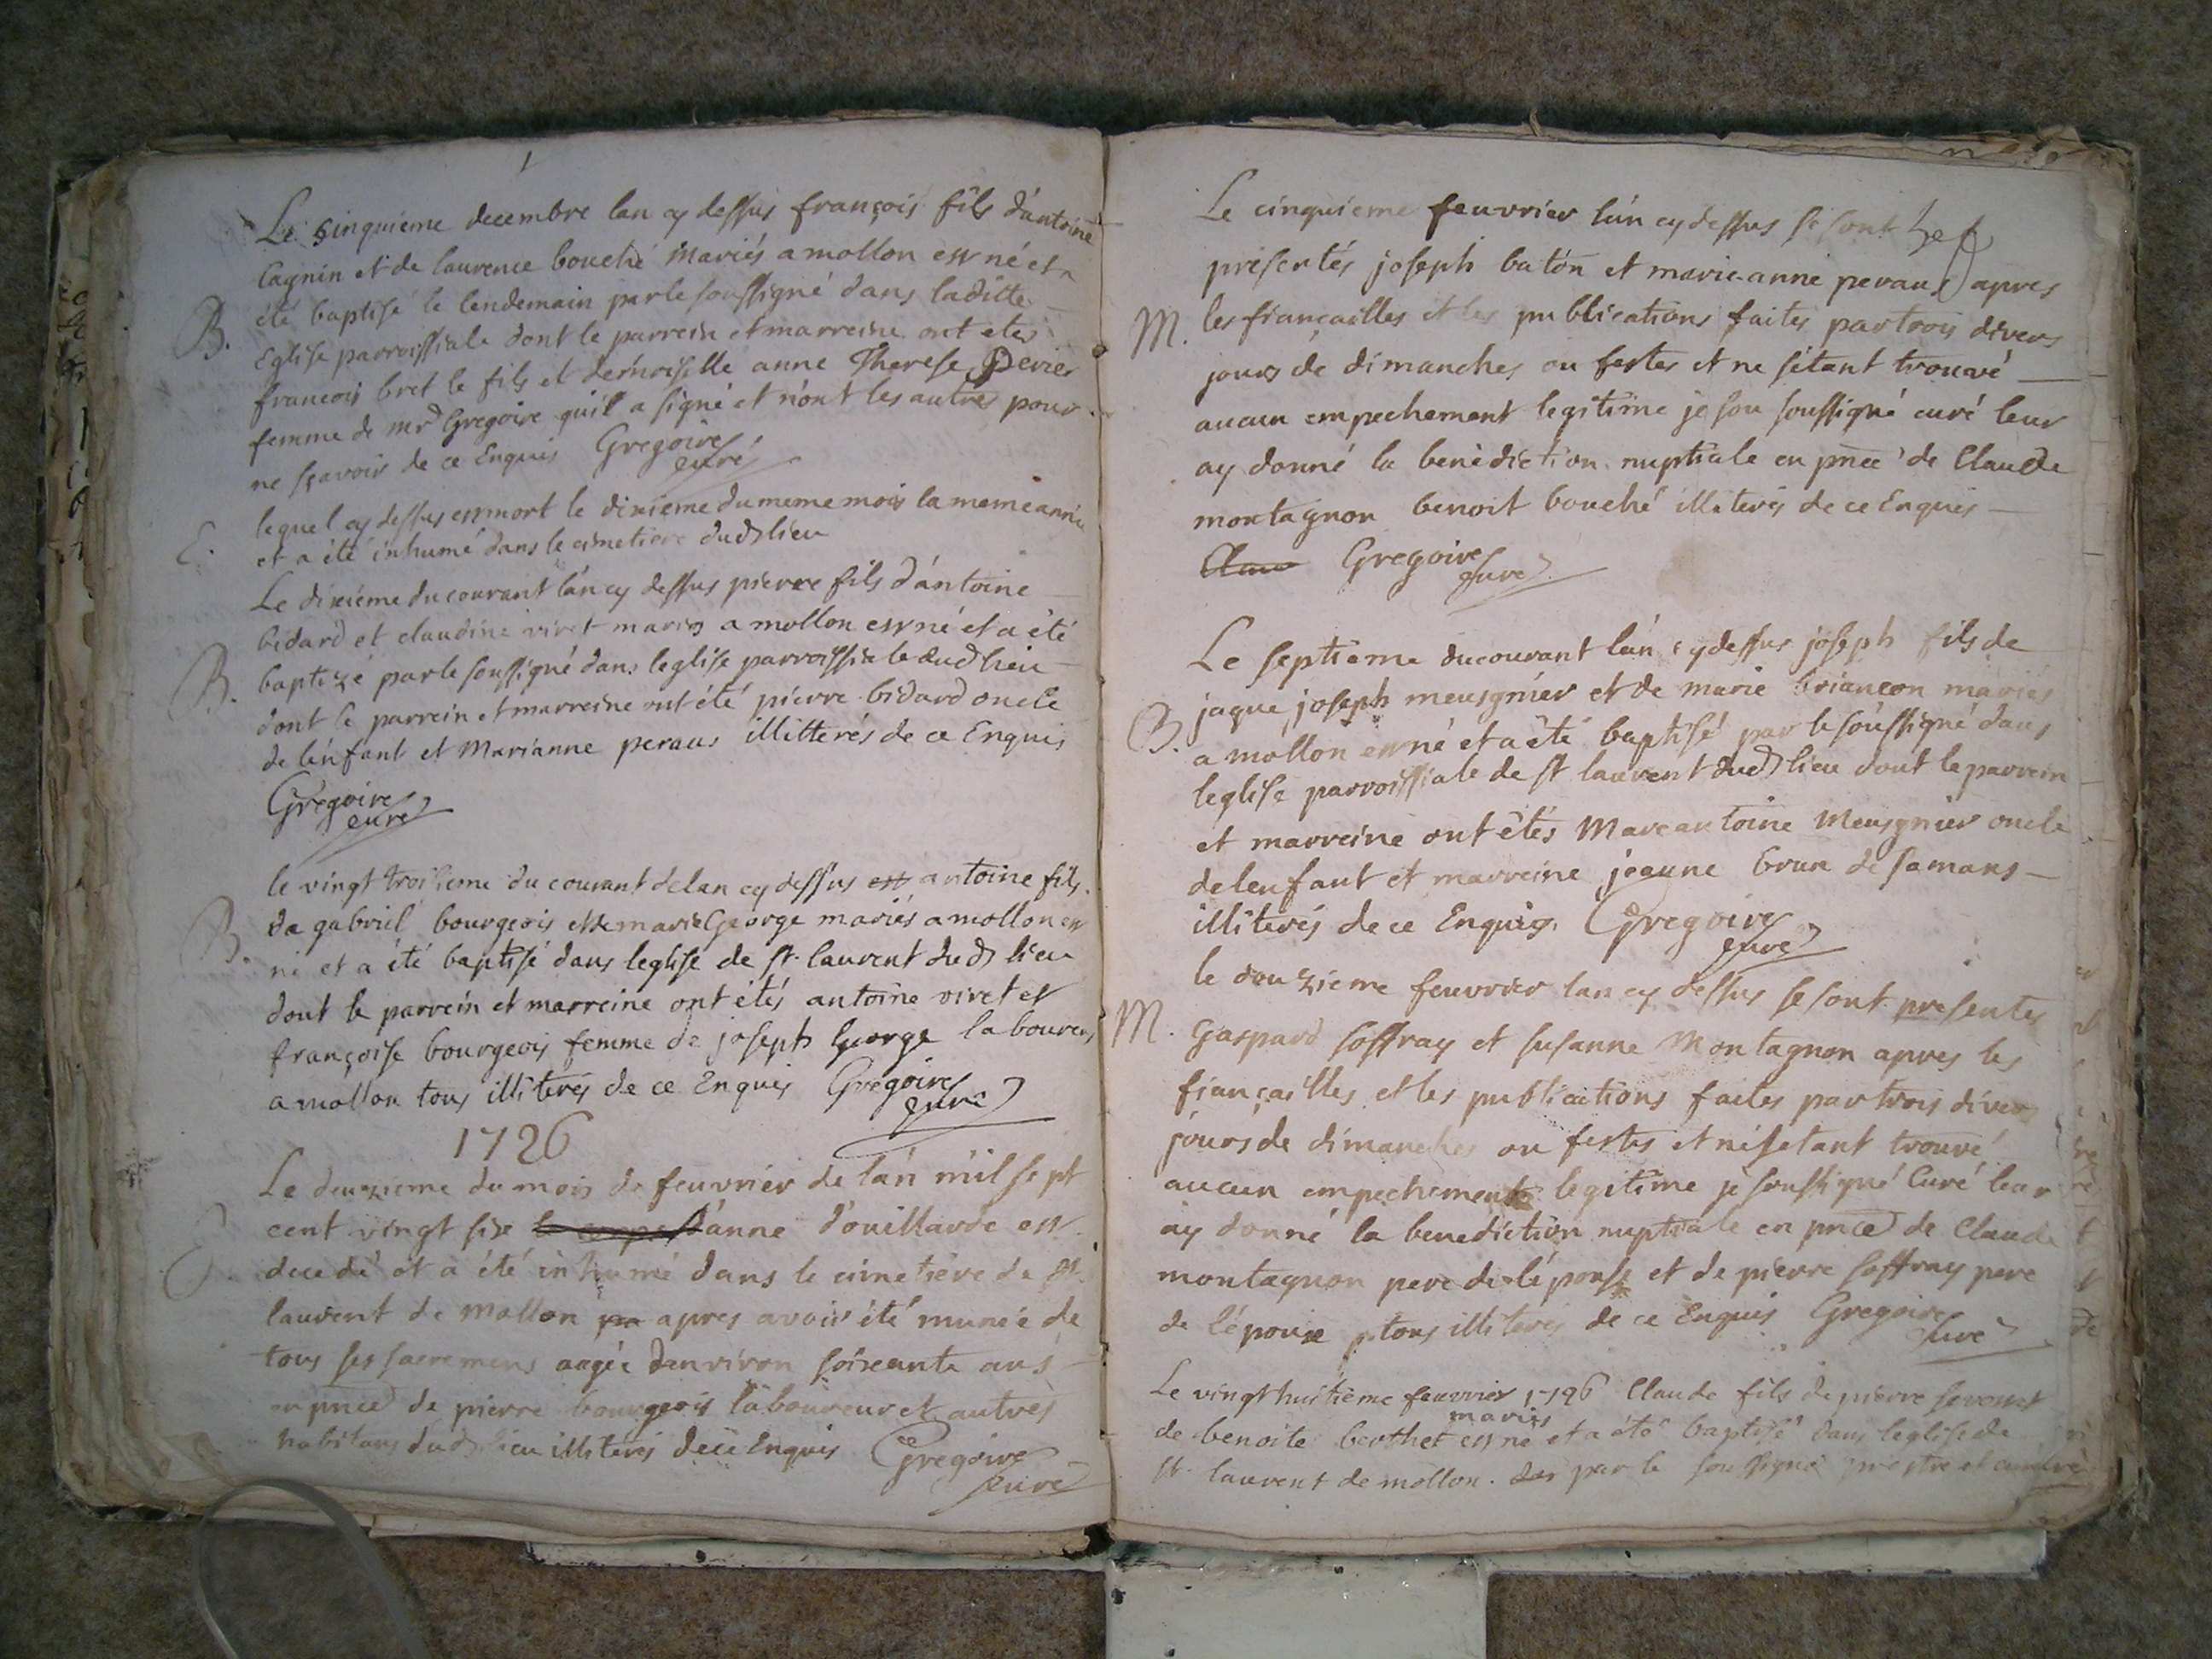 Le cinquième decembre lan cy dessus françois fils d'antoine
Cagnin et de laurence bouché mariés a mollon est né et a
B. été baptisé le lendemain par le soussigné dans laditte
Eglise parroissiale dont le parrein et marreine ont etes
francois bret le fils et demoiselle anne Therese Perier
femme de mr Gregoire qui l'a signé et n'ont les autres pour
ne sçavoir de ce Enquis Gregoire
curé
lequel cy dessus est mort le dixieme du meme mois la meme année
E. et a été inhumé dans le cimetiere dud lieu
Le dixiéme du courant l'an cy dessus pierre fils d'antoine
bidard et claudine viret mariés a mollon est né et a été
B. baptizé par le soussigné dans leglise parroissiale dud lieu
dont le parrein et marreine ont été pierre bidard oncle
de l'enfant et Marianne peraus illitterés de ce Enquis
Gregoire
curé
le vingt troisieme du courant de lan cy dessus est antoine fils
de gabriel bourgeois et de marie George mariés a mollon est
B. né et a été baptisé dans leglise de st laurent dud lieu
dont le parrein et marreine ont étés antoine viret et
françoise bourgeois femme de joseph George laboureur
a mollon tous illiterés de ce Enquis Gregoire
curé
1726
Le deuxieme du mois de feuvrier de l'an mil sept
cent vingt six d'anne d'ouillarde est
decedé et a été inhumé dans le cimetiere de st
laurent de mollon pa apres avoir été munié de
tous ses sacremens aagée denviron soixante ans
en pnce de pierre bourgeois laboureur et autres
habitans dud lieu illiterés de ce Enquis Gregoire
curé
Le cinquieme feuvrier l'an cy dessus se sont
presentés joseph batón et marie-anne peraud apres
M. les fiançailles et les publications faites par trois divers
jours de dimanches ou festes et ne s'étant trouvé
aucun empechement legitime je sou soussigné curé leur
ay donné la benédiction nuptiale en pnce de Claude
montagnon benoit bouché illiterés de ce Enquis
Clau Gregoire
curé
Le septieme du courant l'an cy dessus joseph fils de
jaque joseph meusgnier et de marie briançon mariés
B. a mollon est né et a été baptisé par le soussigné dans
leglise parroissiale de st laurent dud lieu dont le parrein
et marreine ont étés Marcantoine Meusgnier oncle
de lenfant et marreine jeanne brun de samans
illiterés de ce Enquis. Gregoire
curé
le douzieme feuvrier lan cy dessus se sont presentes
M. Gaspard soffray et susanne Montagnon apres les
fiançailles et les publications faites par trois divers
jours de dimanches ou festes et ne setant trouvé
aucun empechement legitime je soussigné Curé leur
ay donné la benediction nuptiale en pnce de Claude
montagnon pere de l'épouse et de pierre soffray pere
de l'épouse tous illiterés de ce Enquis Gregoire
Curé
Le vingt huitième feuvrier 1726 Claude fils de pierre
mariés
de benoite berthet est né et a été baptisé dans leglise de
st laurent de mollon. par le soussigné prestre et curé